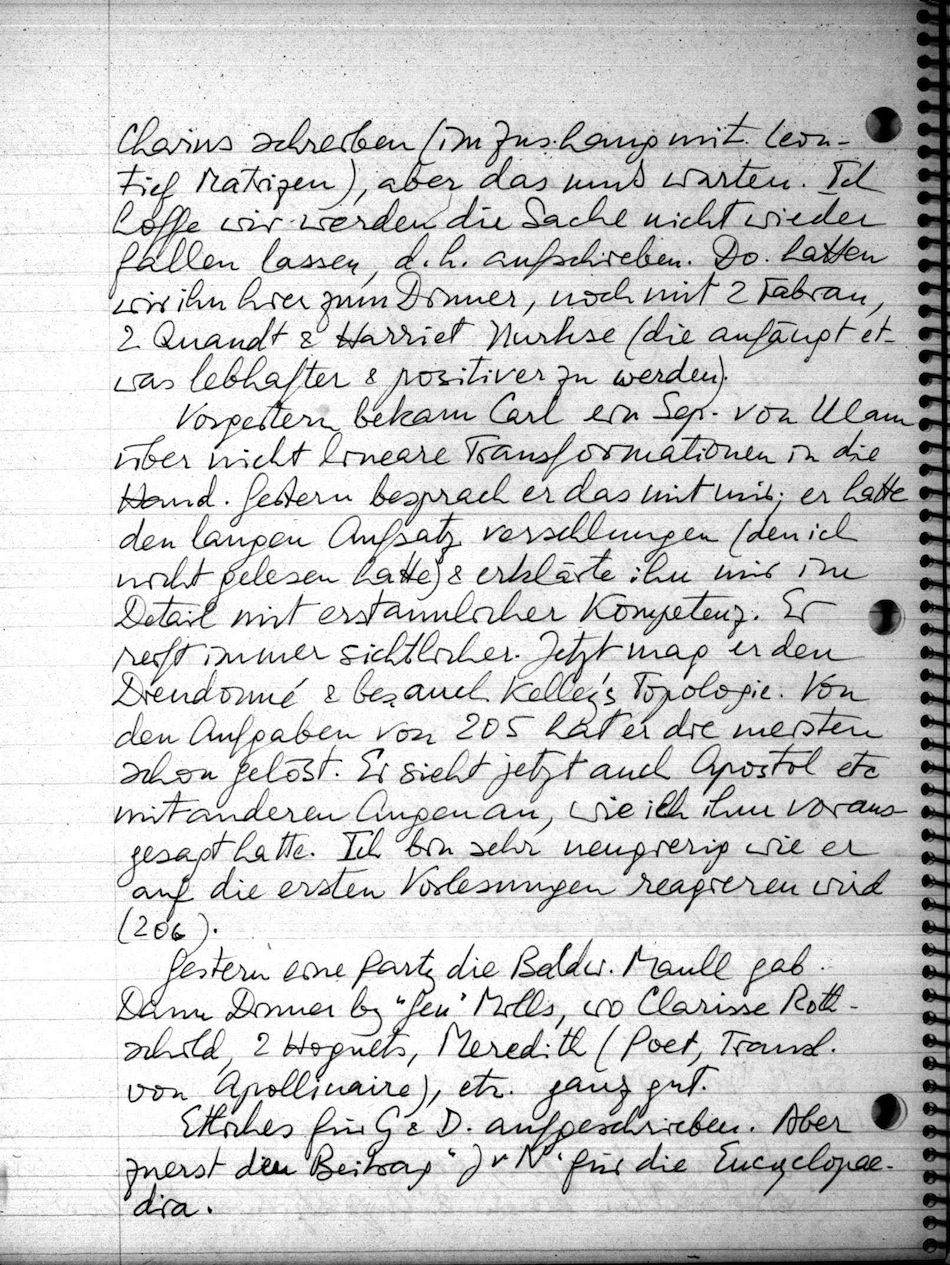 schreiben (im Zus.hang mit Leon-
tief Matrizen), aber das muss warten. Ich
hoffe wir werden die Sache nicht wieder
fallen lassen, d.h. aufschreiben. Do. hatten
wir ihn hier zum Dinner, noch mit 2 Fabian,
2 Quandt & Harriet Nurkse (die anfängt et-
was lebhafter & positiver zu werden).
Vorgestern bekam Carl ein Sep. von Ulam
über nicht lineare Transformationen in die
Hand. Gestern besprach er das mit mir; er hatte
den langen Aufsatz verschlungen (den ich
nicht gelesen hatte) & erklärte ihn mir im
Detail mit erstaunlicher Kompetenz. Er
reift immer sichtlicher. Jetzt mag er den
Dieudonné & bes. auch Kelley's Topologie. Von
den Aufgaben von 205 hat er die meisten
schon gelöst. Er sieht jetzt auch Apostol etc
mit anderen Augen an, wie ich ihm voraus-
gesagt hatte. Ich bin sehr neugierig wie er
auf die ersten Vorlesungen reagieren wird
(206).
Gestern eine Party die Baldw. Maull gab.
Dann Dinner by "Gen" Mills, wo Clarisse Roth-
schild, 2 Hognets, Meredith (Poet, Transl.
von Apollinaire), etc. ganz gut.
Etliches für G & D. aufgeschrieben. Aber
zuerst den Beitrag "J v N" für die Encyclopae-
dia.